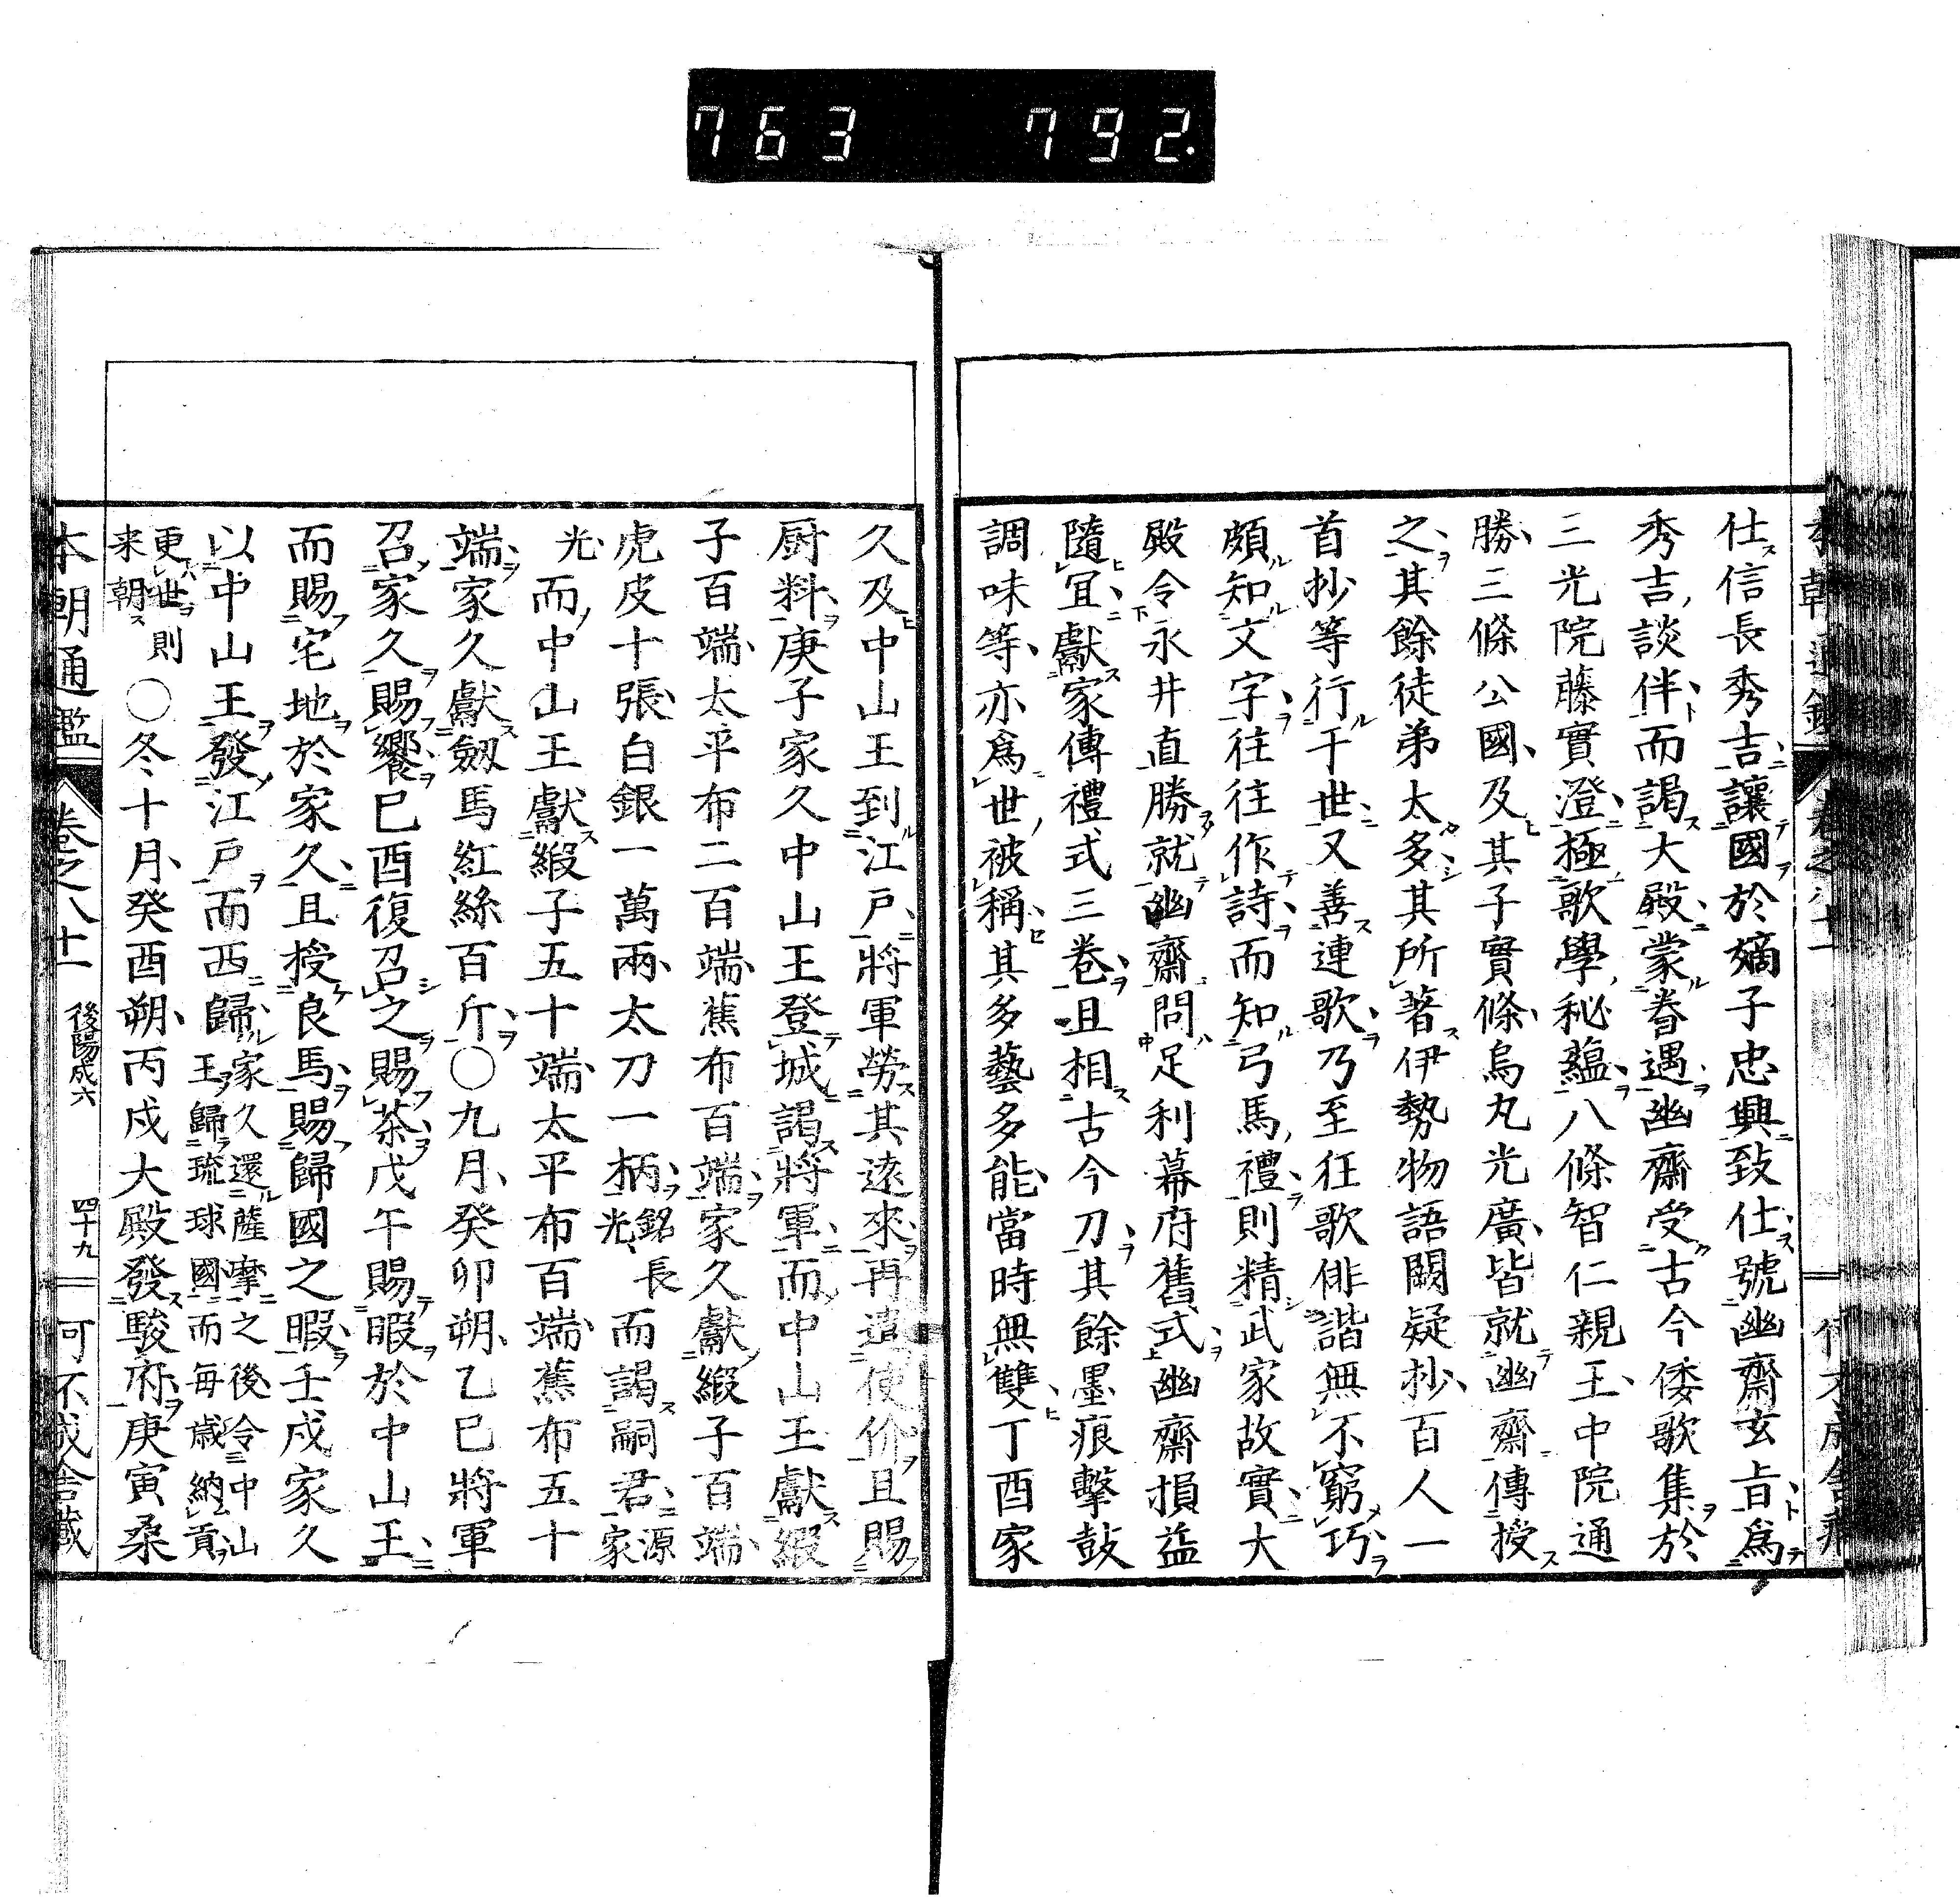 763 792.
仕信長秀吉讓國於嫡子忠興致仕號幽齋玄旨爲
秀吉談伴而謁大殿蒙眷遇幽齋受古今倭歌集於
三光院藤實澄極歌學秘蘊八條智仁親王中院通
勝三條公國及其子實條烏丸光廣皆就幽齋傳授
之其餘徒弟太多其所著伊勢物語闕疑抄百人一
首抄等行于世又善連歌乃至狂歌俳諧無不窮巧
頗知文字往往作詩而知弓馬禮則精武家故實大
殿令永井直勝就幽齋問足利幕府舊式幽齋損益
隨宜獻家傳禮式三卷且相古今刀其餘墨痕擊鼓
調味等亦爲世被稱其多藝多能當時無雙丁酉家
久及中山王到江戸將軍勞其遠來再遣使价且賜
厨料庚子家久中山王登城謁將軍而中山王獻緞
子百端太平布二百端蕉布百端家久獻緞子百端
虎皮十張白銀一萬兩太刀一柄銘長光而謁嗣君源家
光而中山王獻緞子五十端太平布百端蕉布五十
端家久獻劔馬紅絲百斤〇九月癸卯朔乙巳將軍
召家久賜饗已酉復召之賜茶戊午賜暇於中山王
而賜宅地於家久且授良馬賜歸國之暇壬戌家久
以中山王發江戸而西歸家久還薩摩之後令中山王歸琉球國而毎歳納貢
更世則来朝〇冬十月癸酉朔丙戌大殿發駿府庚寅桑
本朝通鑑 卷之八十一 後陽成六 四十九 可不成舎藏